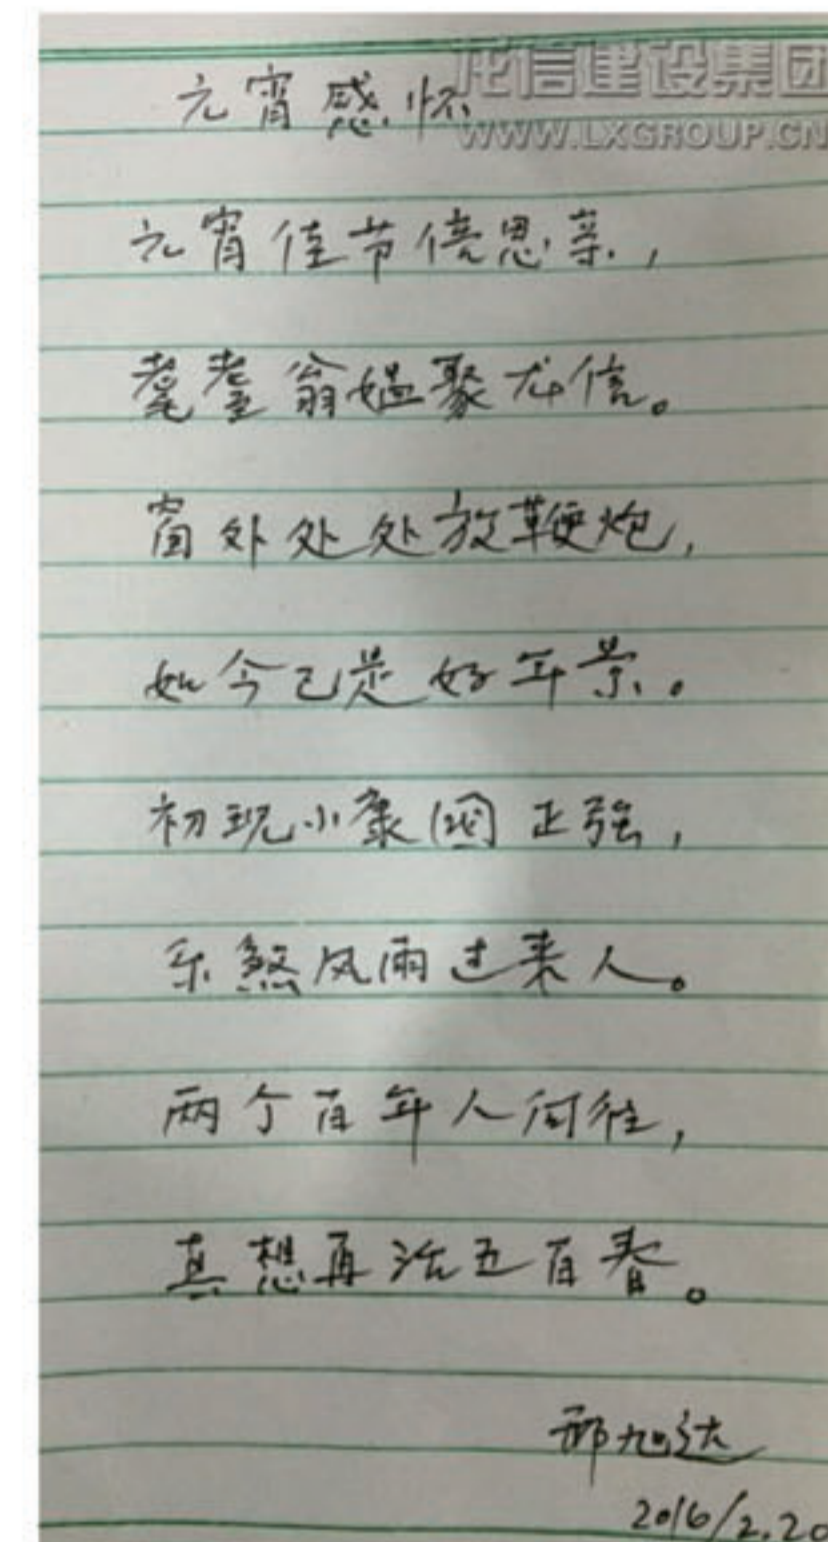 龙信建设集团
WWW.LXGROUP.CN
元宵感怀
元宵佳节倍思亲，
耄耋翁媪聚龙信。
窗外处处放鞭炮，
如今已是好年景。
初现小康國正強，
乐煞风雨过来人。
两个百年人向往，
真想再活五百春。
邢旭达
2016/2.20